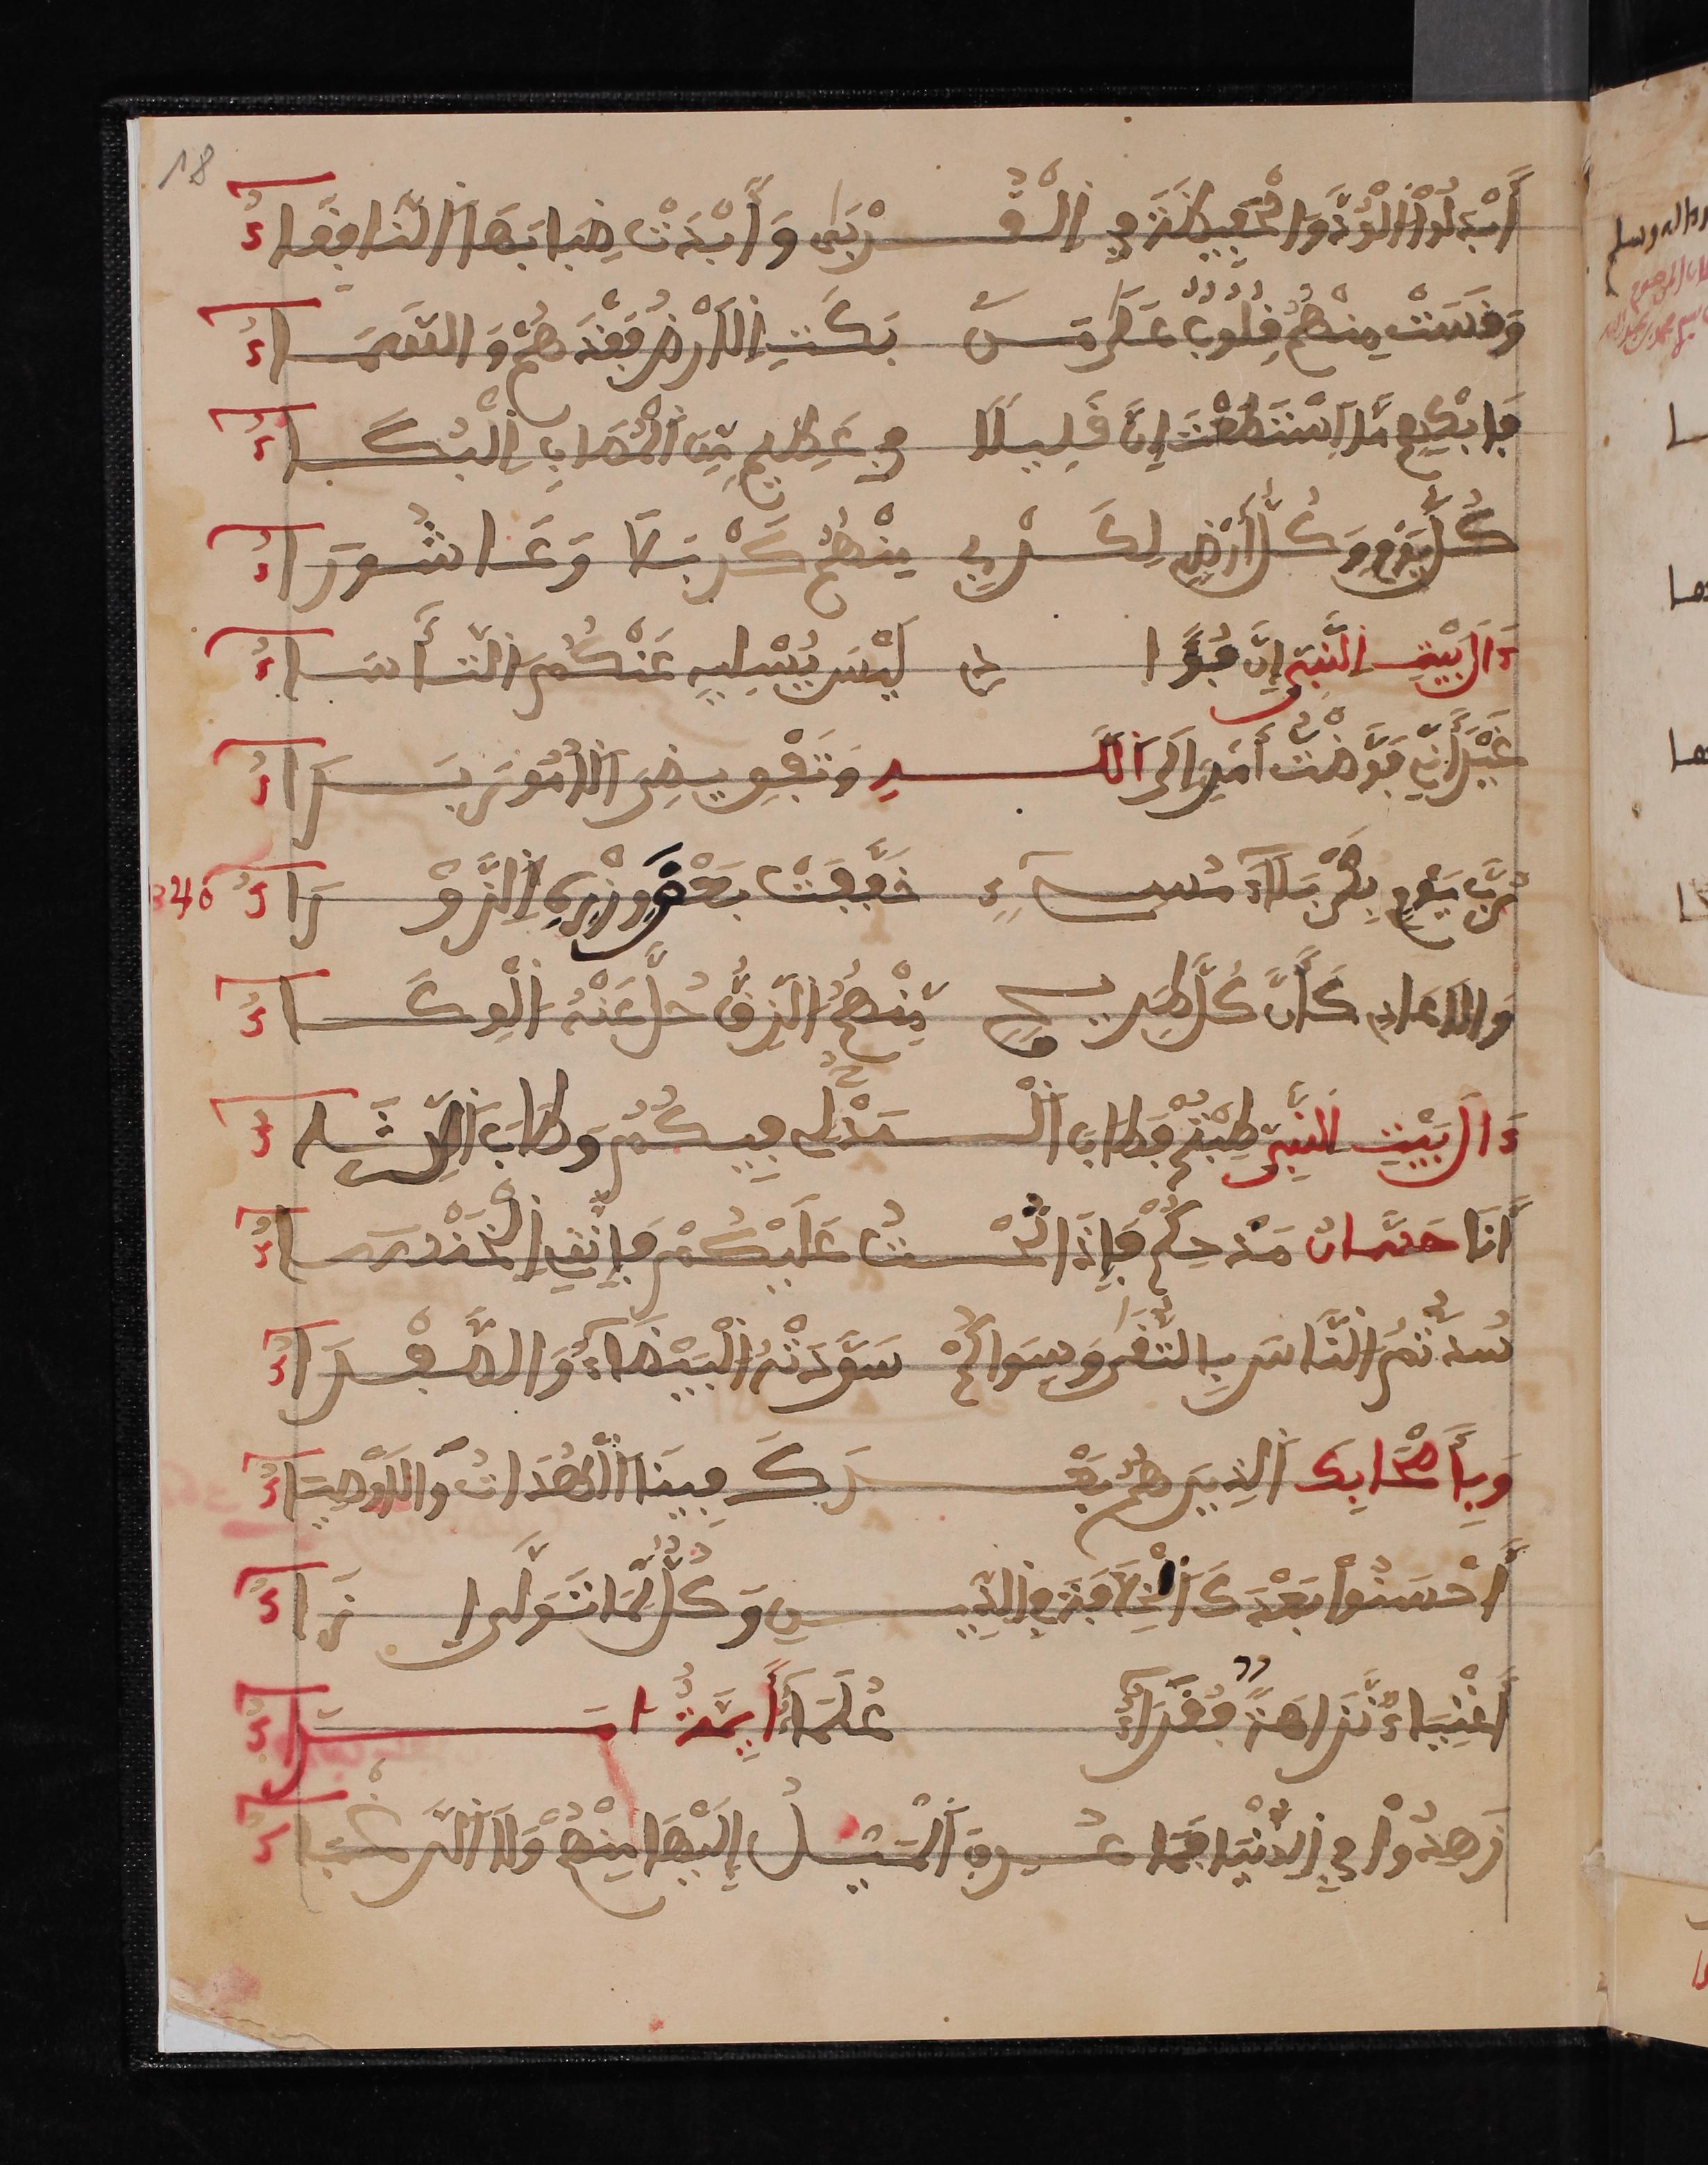 18
أَبْدَلُوا الْوُدَّ وَالْحَفِيظَةَ فِي الْقُرْبَى وَأَبْدَتْ ضِبَابَهَا النَّافِقَاءُ
وَقَسَتْ مِنْهُمُ قُلُوبٌ عَلَى مَنْ بَكَتِ الْأَرْضُ فَقْدَهُمْ وَالسَّمَاءُ
فَابْكِهِمْ مَا اسْتَطَعْتَ إِنَّ قَلِيلًا فِي عَظِيمٍ مِنَ الْمُصَابِ الْبُكَاءُ
كُلُّ يَوْمٍ وَكُلُّ أَرْضٍ لِكَرْبِي مِنْهُمُ كَرْبَلَا وَعَاشُورَاءُ
ءَالَ بَيْتِ النَّبِيِّ إِنَّ فُؤَادِي لَيْسَ يُسْلِيهِ عَنْكُمُ التَّأْسَاءُ
غَيْرَ أَنِّي فَوَّضْتُ أَمْرِي إِلَى اللَّهِ وَتَفْوِيضِيَ الْأُمُورَ بَرَاءُ
رُبَّ يَوْمٍ بِكَرْبَلَاءَ مُسِيءٍ خَفَّفَتْ بَعْضَ وِزْرِهِ الزَّوْرَاءُ
340
وَالْأَعَادِي كَأَنَّ كُلَّ طَرِيحٍ مِنْهُمُ الزِّقُّ حُلَّ عَنْهُ الْوِكَاءُ
ءَالَ بَيْتِ النَّبِيِّ طِبْتُمْ فَطَابَ الْمَدْحُ لِي فِيكُمُ وَطَابَ الرِّثَاءُ
أَنَا حَسَّانُ مَدْحِكُمْ فَإِذَا نُحْتُ عَلَيْكُمْ فَإِنَّنِي الْخَنْسَاءُ
سُدْتُمُ النَّاسَ بِالتُّقَى وَسِوَاكُمْ سَوَّدَتْهُ الْبَيْضَاءُ وَالصَّفْرَاءُ
وَبِأَصْحَابِكَ الَّذِينَ هُمُ بَعْدَكَ فِينَا الْهُدَاةُ وَالْأَوْصِيَاءُ
أَحْسَنُوا بَعْدَكَ الْخِلَافَةَ فِي الدِّينِ وَكُلٌّ لِمَا تَوَلَّى إِزَاءُ
أَغْنِيَاءٌ نَزَاهَةً فُقَرَاءٌ عُلَمَاءٌ أَئِمَّةٌ أُمَرَاءُ
زَهِدُوا فِي الدُّنْيَا فَمَا عُرِفَ الْمَيْلُ إِلَيْهَا مِنْهُمْ وَلَا الرَّغْبَاءُ